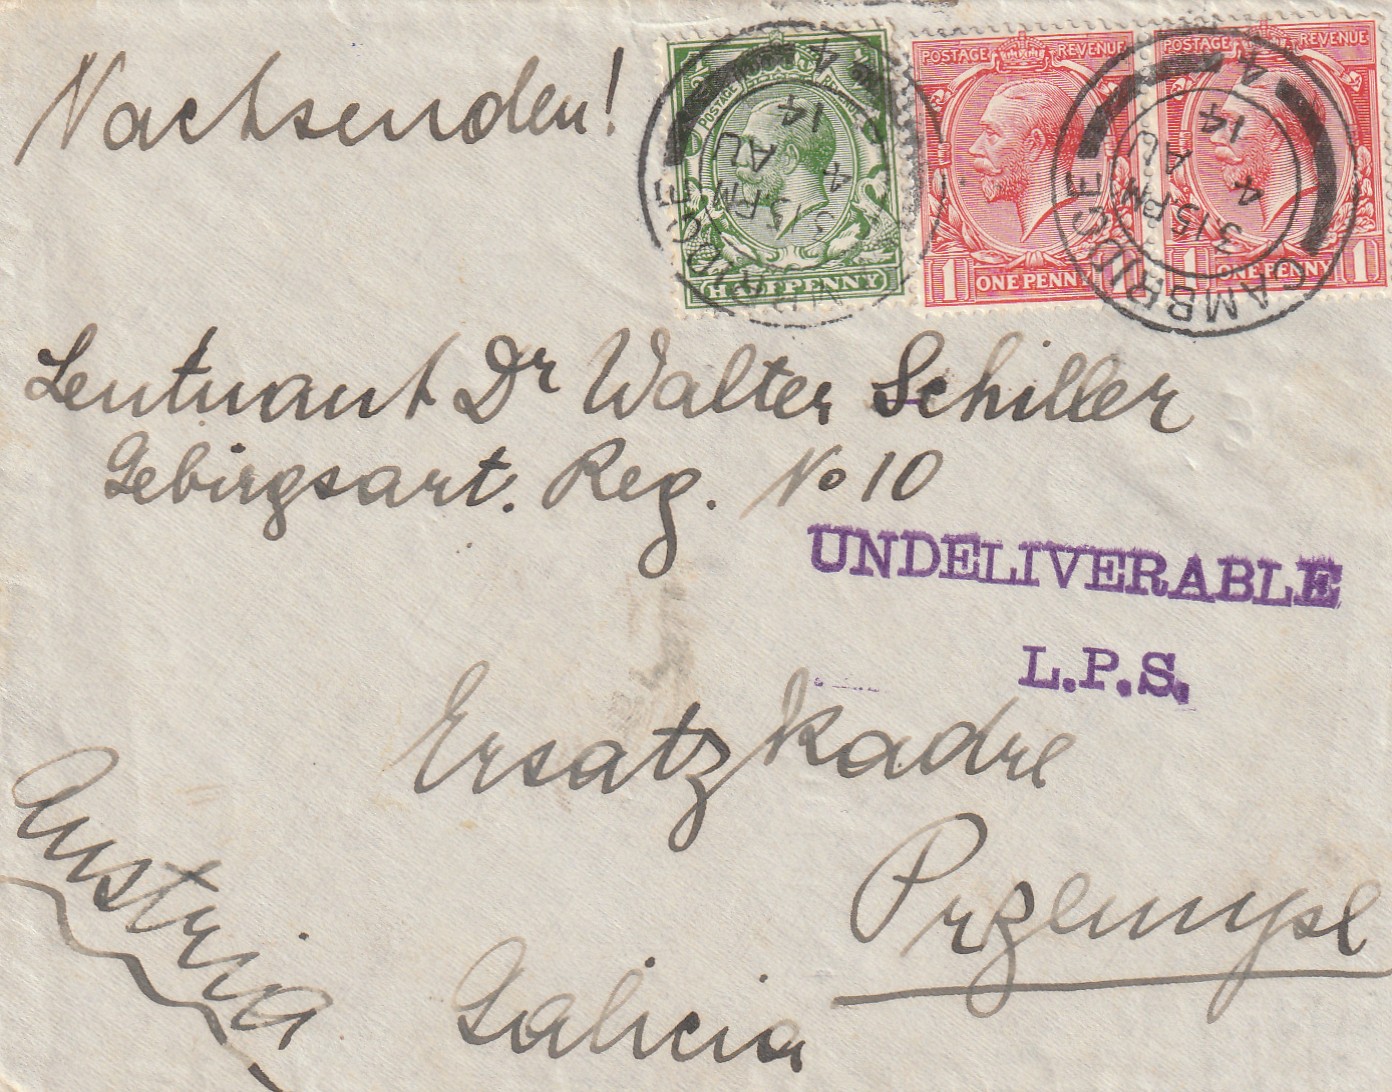 Nachsenden!
POSTAGE REVENUE
HALFPENNY
POSTAGE REVENUE
1 ONE PENNY 1
POSTAGE REVENUE
1 ONE PENNY 1
CAMBRIDGE
3 15 PM
4 AU
14
CAMBRIDGE
3 15 PM
4 AU
14
Leutnant Dr Walter Schiller
Gebirgsart. Reg. No 10
UNDELIVERABLE
L.P.S.
Ersatzkadre
Przemysl
Austria
Galicia